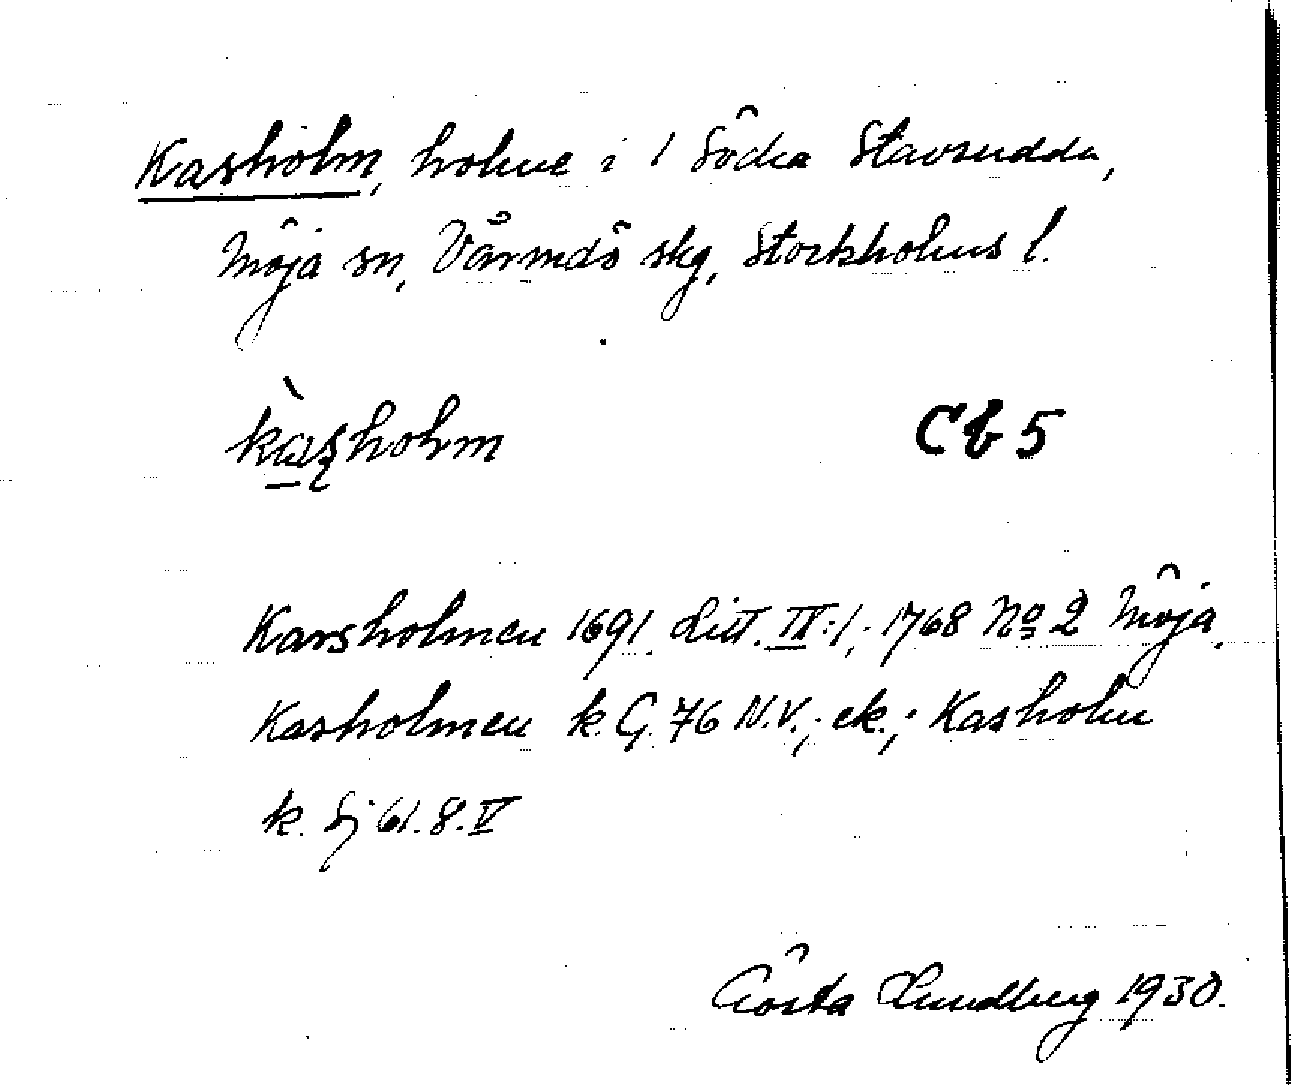 Kasholm, holme i / Södra Stavsudda,
Möja sn, Värmdö skg, Stockholms l.
kàsholm
Cb5
Karsholmen 1691 Litt. III:1; 1768 No 2 Möja.
Kasholmen k. G. 76 N.V.; ek.; Kasholm
k. Sj 61.8.V
Gösta Lundberg 1930.